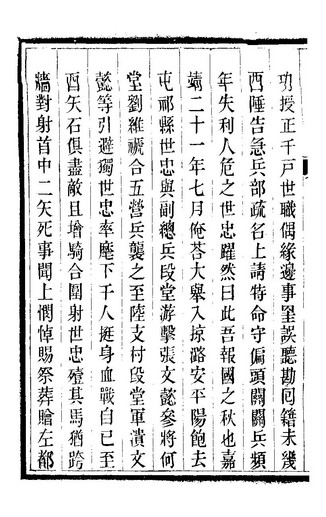 功授正千戶世職偶緣邊事罣誤聽勘囘籍未幾
西陲告急兵部疏名上請特命守偏頭關關兵頻
年失利人危之世忠躍然曰此吾報國之秋也嘉
靖二十一年七月俺荅大舉入掠潞安平陽飽去
屯祁縣世忠與副總兵段堂游擊張文懿參將何
堂劉維禠合五營兵襲之至陸支村段堂軍潰文
懿等引避獨世忠率麾下千人挺身血戰自巳至
酉矢石俱盡敵且增騎合圍射世忠殪其馬猶跨
牆對射首中二矢死事聞上憫悼賜祭葬贈左都